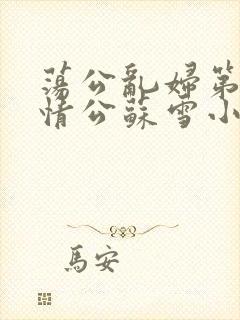 蕩公亂婦第
情公蘇雪小
馬安